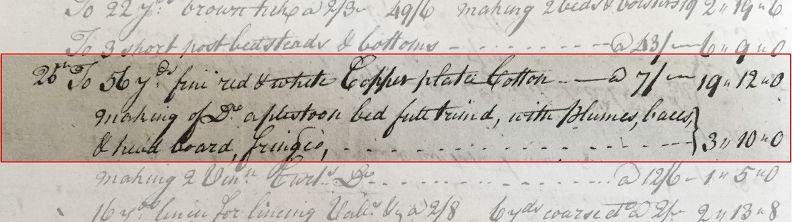 To 22 yds brown tick a 2/3 - 49/6 making 2 beds & bolsters 19 2 " 19 " 6
To 3 short post bedsteads & bottoms - - - - - - - - a 43/ - 6 " 9 " 0
28th To 56 yds fine red & white Copper plate Cotton - - a 7/ - 19 " 12 " 0
making of Do a plestoon bed full trimd, with Plumes, bases,
& head board, fringes, - - - - - - - - - - - - } 3 " 10 " 0
making 2 Venn Curtns Do - - - - - - - a 12/6 - 1 " 5 " 0
16 yds linen for lineing Vals &c a 2/8 6 yds coarse do a 2/- 2 " 13 " 8